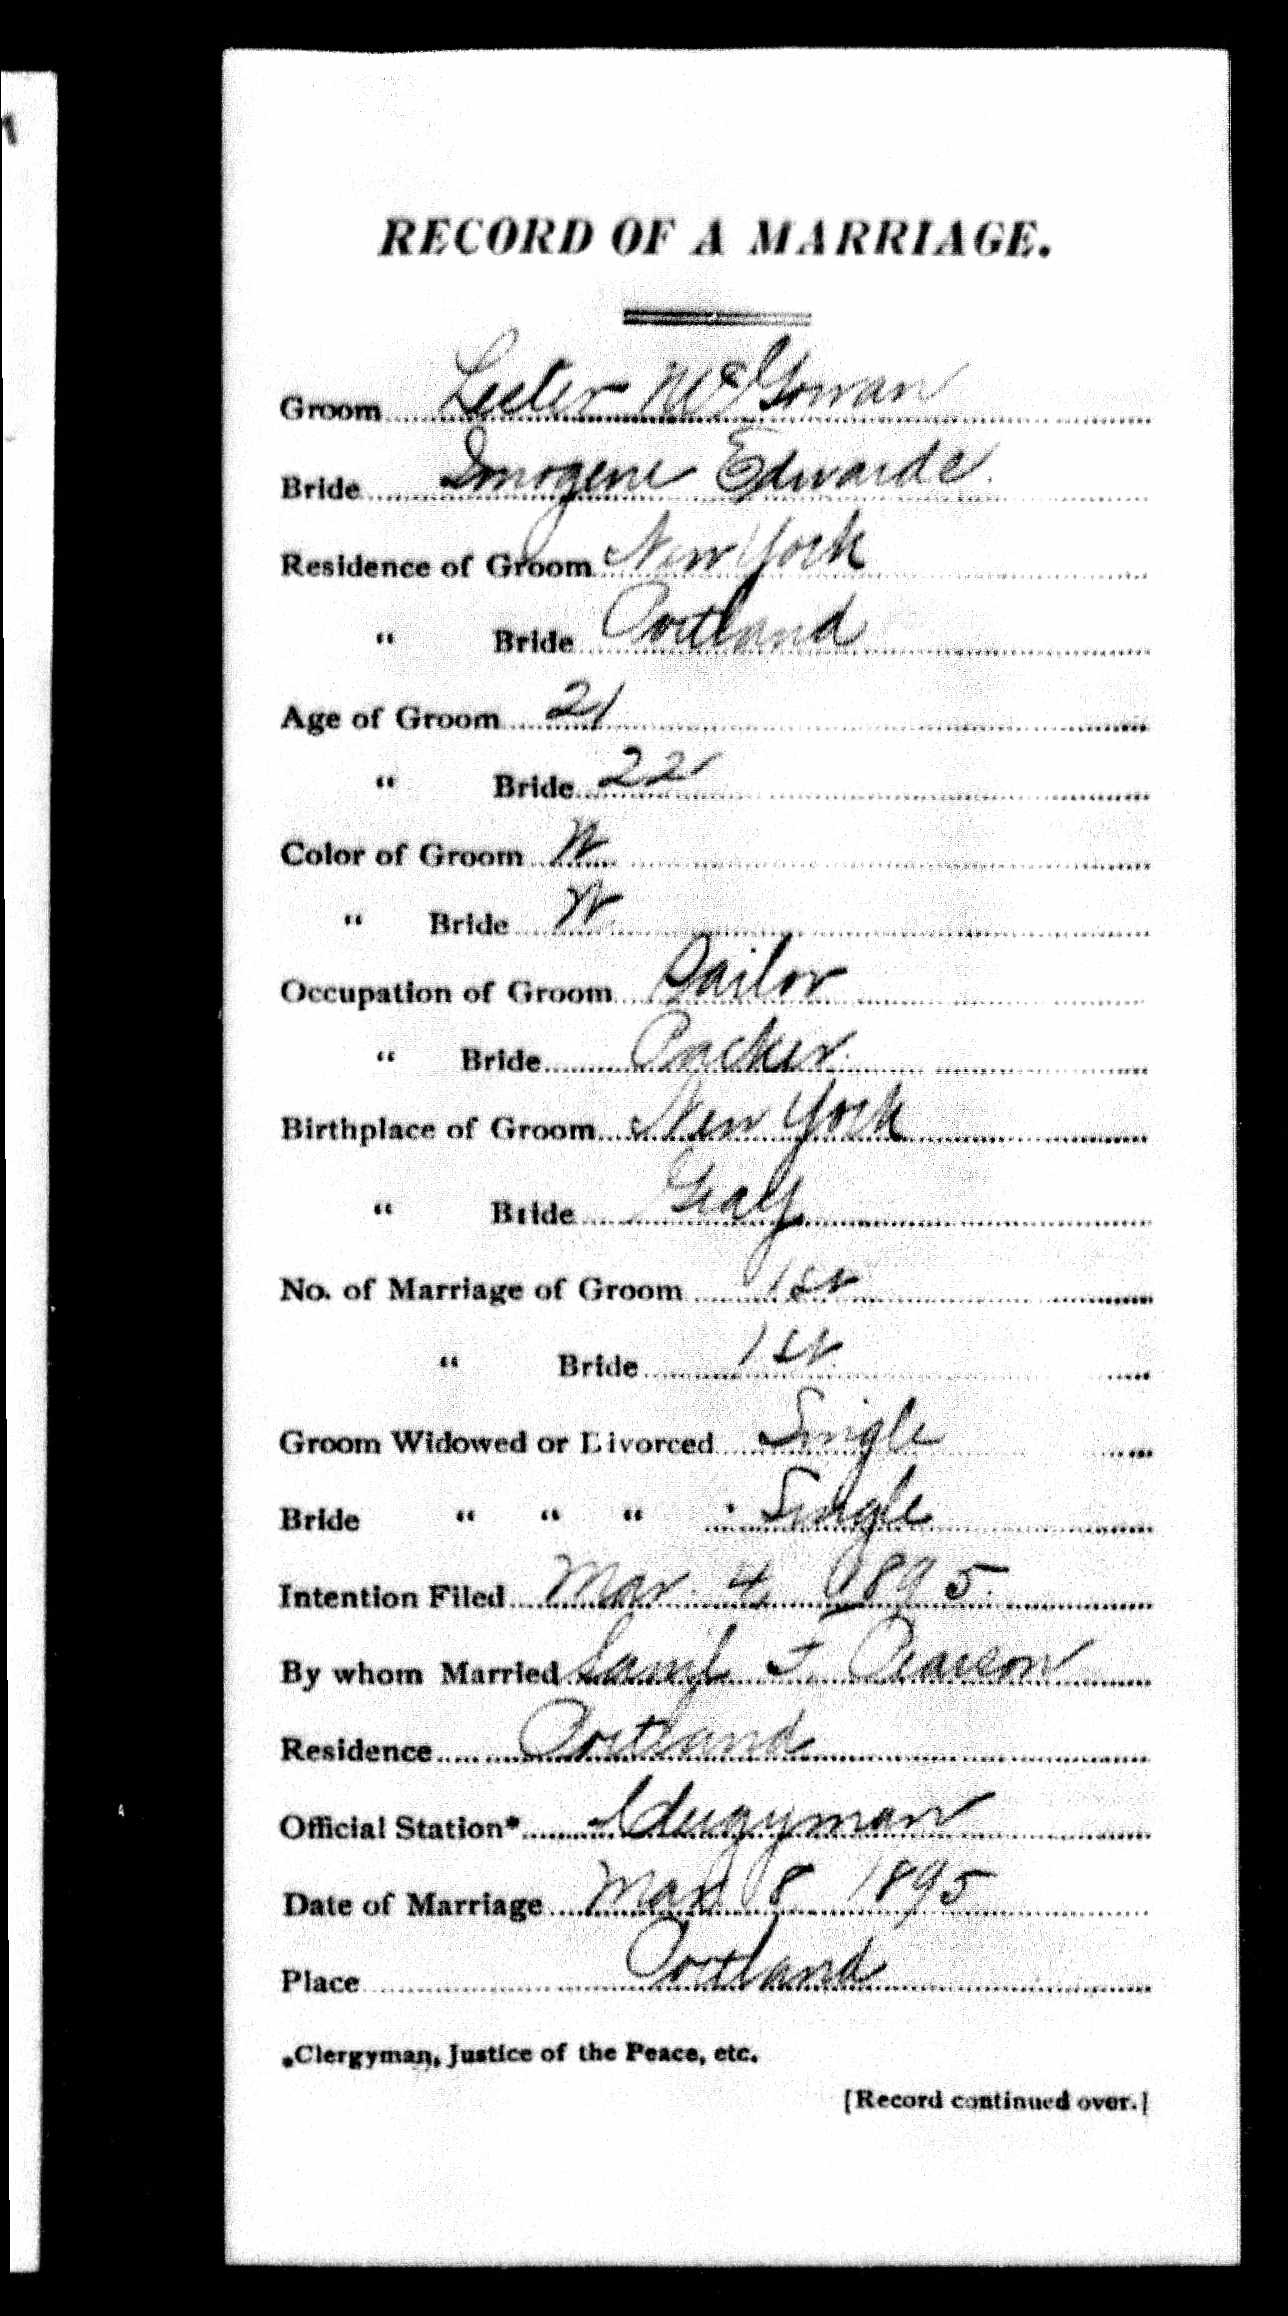 RECORD OF A MARRIAGE.
Groom Lester McGowan
Bride Imogene Edwards
Residence of Groom New York
" Bride Portland
Age of Groom 21
" Bride 22
Color of Groom W
" Bride W
Occupation of Groom Sailor
" Bride Packer
Birthplace of Groom New York
" Bride Gray
No. of Marriage of Groom 1st
" Bride 1st
Groom Widowed or Divorced Single
Bride " " " Single
Intention Filed Mar. 4, 1895.
By whom Married Saml F. Pearson
Residence Portland
Official Station* Clergyman
Date of Marriage Mar 8 1895
Place Portland
*Clergyman, Justice of the Peace, etc.
[Record continued over.]